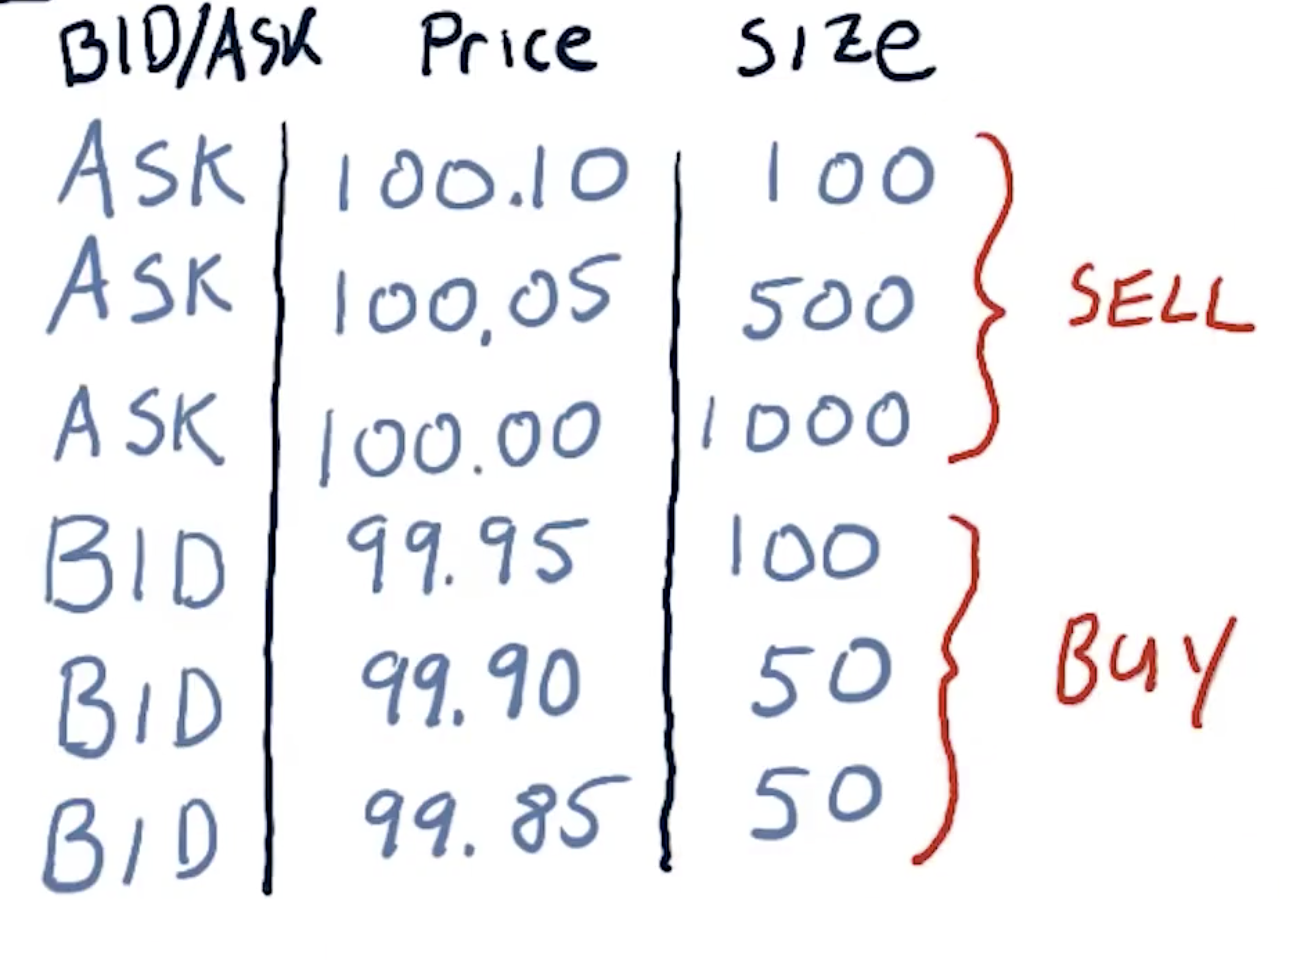 BID/ASK Price Size
ASK 100.10 100
ASK 100.05 500
SELL
ASK 100.00 1000
BID 99.95 100
BID 99.90 50
BUY
BID 99.85 50